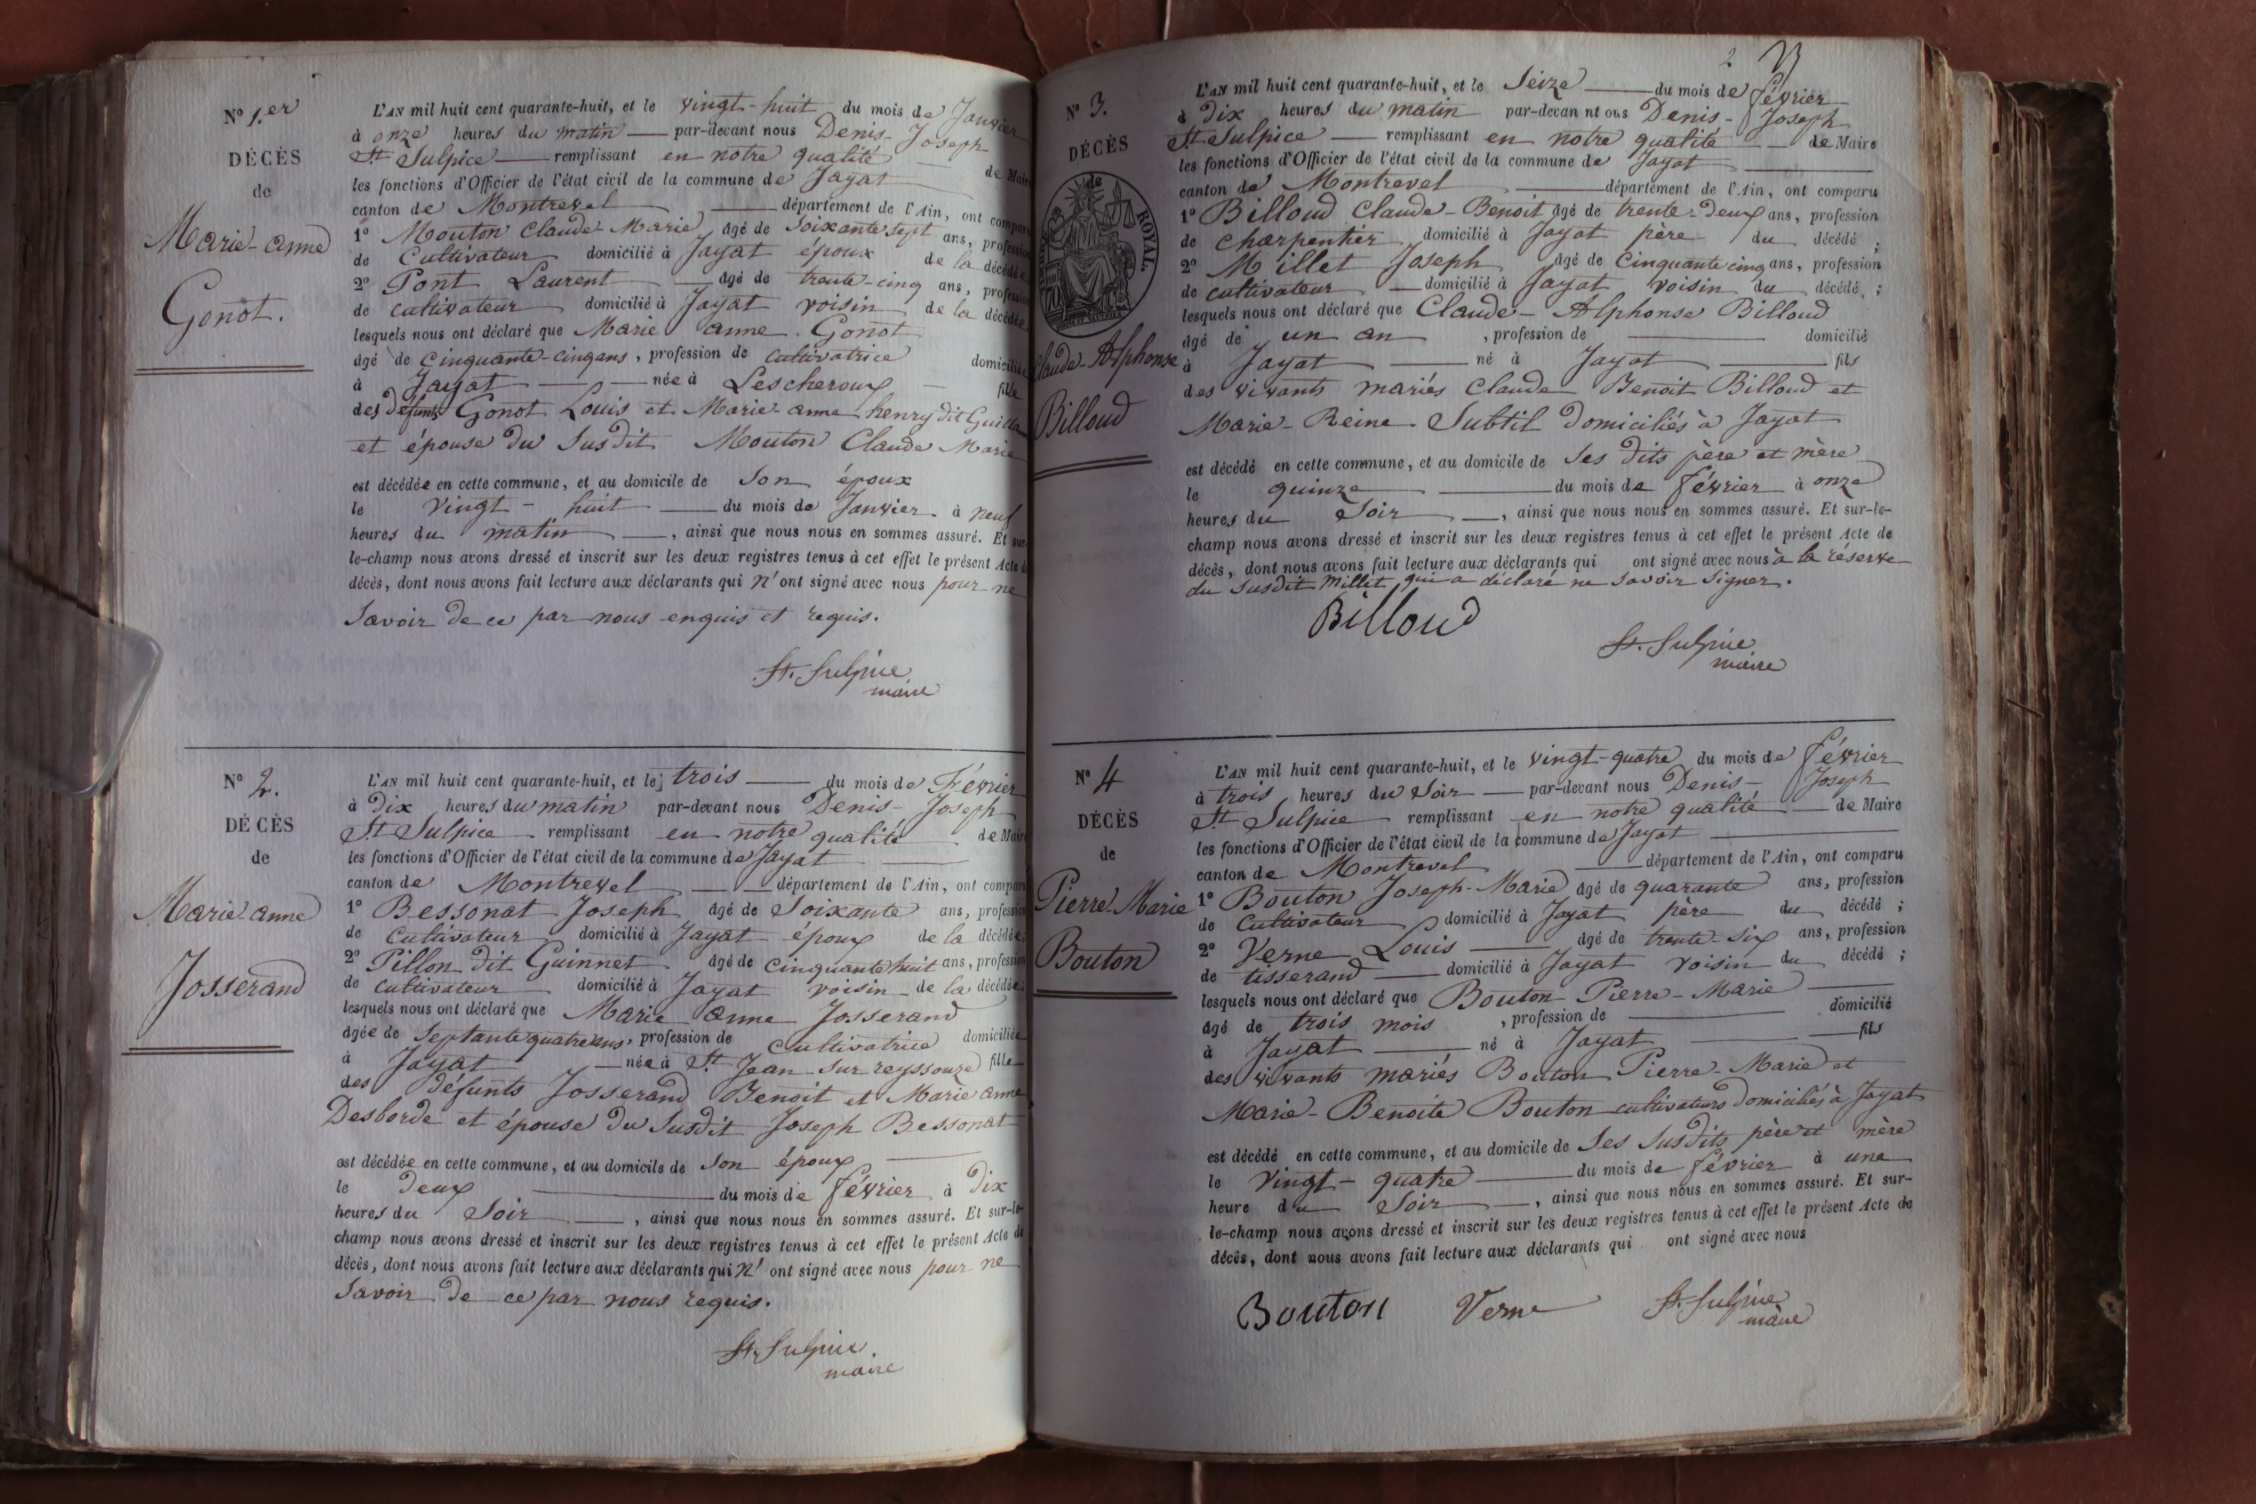 N° 1.er
DÉCÈS
de
Marie-anne
Gonot.
L'AN mil huit cent quarante-huit, et le vingt-huit du mois de Janvier
à onze heures du matin par-devant nous Denis-Joseph
St Sulpice remplissant en notre qualité de Maire
les fonctions d'Officier de l'état civil de la commune de Jayat
canton de Montrevel département de l'Ain, ont comparu
1° Mouton Claude-Marie âgé de soixante sept ans, profession
de Cultivateur domicilié à Jayat époux de la décédée
2° Pont Laurent âgé de trente-cinq ans, profession
de cultivateur domicilié à Jayat voisin de la décédée
lesquels nous ont déclaré que Marie anne Gonot
âgé de Cinquante-cinq ans, profession de cultivatrice domiciliée
à Jayat née à Lescheroux fille
des défunts Gonot Louis et Marie-anne henry dit
et épouse du susdit Mouton Claude Marie
est décédée en cette commune, et au domicile de son époux
le vingt-huit du mois de Janvier à neuf
heures du matin, ainsi que nous nous en sommes assuré. Et sur-
le-champ nous avons dressé et inscrit sur les deux registres tenus à cet effet le présent Acte de
décès, dont nous avons fait lecture aux déclarants qui n'ont signé avec nous pour ne
savoir de ce par nous enquis et requis.
St. Sulpice
maire
N° 2.
DÉCÈS
de
Marie-anne
Josserand
L'AN mil huit cent quarante-huit, et le trois du mois de Février
à Dix heures du matin par-devant nous Denis-Joseph
St Sulpice remplissant en notre qualité de Maire
les fonctions d'Officier de l'état civil de la commune de Jayat
canton de Montrevel département de l'Ain, ont comparu
1° Bessonat Joseph âgé de Soixante ans, profession
de Cultivateur domicilié à Jayat époux de la décédée
2° Pillon dit Guinnet âgé de cinquante huit ans, profession
de cultivateur domicilié à Jayat voisin de la décédée
lesquels nous ont déclaré que Marie anne Josserand
âgée de septante quatre ans, profession de cultivatrice domiciliée
à Jayat née à St Jean sur reyssouze fille
des défunts Josserand Benoit et Marie anne
Desborde et épouse du susdit Joseph Bessonat
est décédée en cette commune, et au domicile de son époux
le deux du mois de février à dix
heures du Soir, ainsi que nous nous en sommes assuré. Et sur-le-
champ nous avons dressé et inscrit sur les deux registres tenus à cet effet le présent Acte de
décès, dont nous avons fait lecture aux déclarants qui n'ont signé avec nous pour ne
savoir de ce par nous requis.
St. Sulpice
maire
2
N° 3.
DÉCÈS
de
ROYAL.
Claude-Alphonse
Billoud
L'AN mil huit cent quarante-huit, et le Seize du mois de février
à dix heures du matin par-devan nt ous Denis-Joseph
St Sulpice remplissant en notre qualité de Maire
les fonctions d'Officier de l'état civil de la commune de Jayat
canton de Montrevel département de l'Ain, ont comparu
1° Billoud Claude-Benoit âgé de trente-deux ans, profession
de charpentier domicilié à Jayat père du décédé ;
2° Millet Joseph âgé de Cinquante cinq ans, profession
de cultivateur domicilié à Jayat voisin du décédé ;
lesquels nous ont déclaré que Claude-Alphonse Billoud
âgé de un an, profession de domicilié
à Jayat né à Jayat fils
des vivants mariés Claude Benoit Billoud et
Marie-Reine Subtil domiciliés à Jayat
est décédé en cette commune, et au domicile de ses dits père et mère
le quinze du mois de février à onze
heures du Soir, ainsi que nous nous en sommes assuré. Et sur-le-
champ nous avons dressé et inscrit sur les deux registres tenus à cet effet le présent Acte de
décès, dont nous avons fait lecture aux déclarants qui ont signé avec nous à la réserve
du susdit Millet qui a déclaré ne savoir signer.
Billoud
St. Sulpice
maire
N° 4
DÉCÈS
de
Pierre-Marie
Bouton
L'AN mil huit cent quarante-huit, et le vingt-quatre du mois de février
à trois heures du Soir par-devant nous Denis-Joseph
St Sulpice remplissant en notre qualité de Maire
les fonctions d'Officier de l'état civil de la commune de Jayat
canton de Montrevel département de l'Ain, ont comparu
1° Bouton Joseph-Marie âgé de quarante ans, profession
de Cultivateur domicilié à Jayat père du décédé ;
2° Verne Louis âgé de trente-six ans, profession
de tisserand domicilié à Jayat voisin du décédé ;
lesquels nous ont déclaré que Bouton Pierre-Marie
âgé de trois mois, profession de domicilié
à Jayat né à Jayat fils
des vivants mariés Bouton Pierre-Marie et
Marie-Benoite Bouton cultivateurs domiciliés à Jayat
est décédé en cette commune, et au domicile de ses susdits père et mère
le vingt-quatre du mois de février à une
heure du Soir, ainsi que nous nous en sommes assuré. Et sur-
le-champ nous avons dressé et inscrit sur les deux registres tenus à cet effet le présent Acte de
décès, dont nous avons fait lecture aux déclarants qui ont signé avec nous
Bouton Verne St. Sulpice
maire